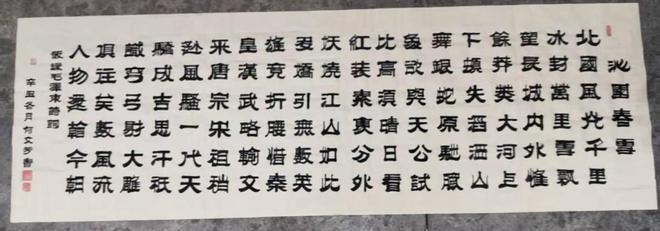 沁園春雪
北國風光千里
冰封萬里雪飄
望長城内外惟
餘莽莽大河上
下頓失滔滔山
舞銀蛇原馳臘
象欲與天公試
比高須晴日看
紅裝素裹分外
妖嬈江山如此
多嬌引無數英
雄竞折腰惜秦
皇漢武略輸文
采唐宗宋祖稍
遜風騷一代天
驕成吉思汗祇
識彎弓射大雕
俱往矣數風流
人物還看今朝
錄毛澤東詩詞
辛丑冬月何文芳書